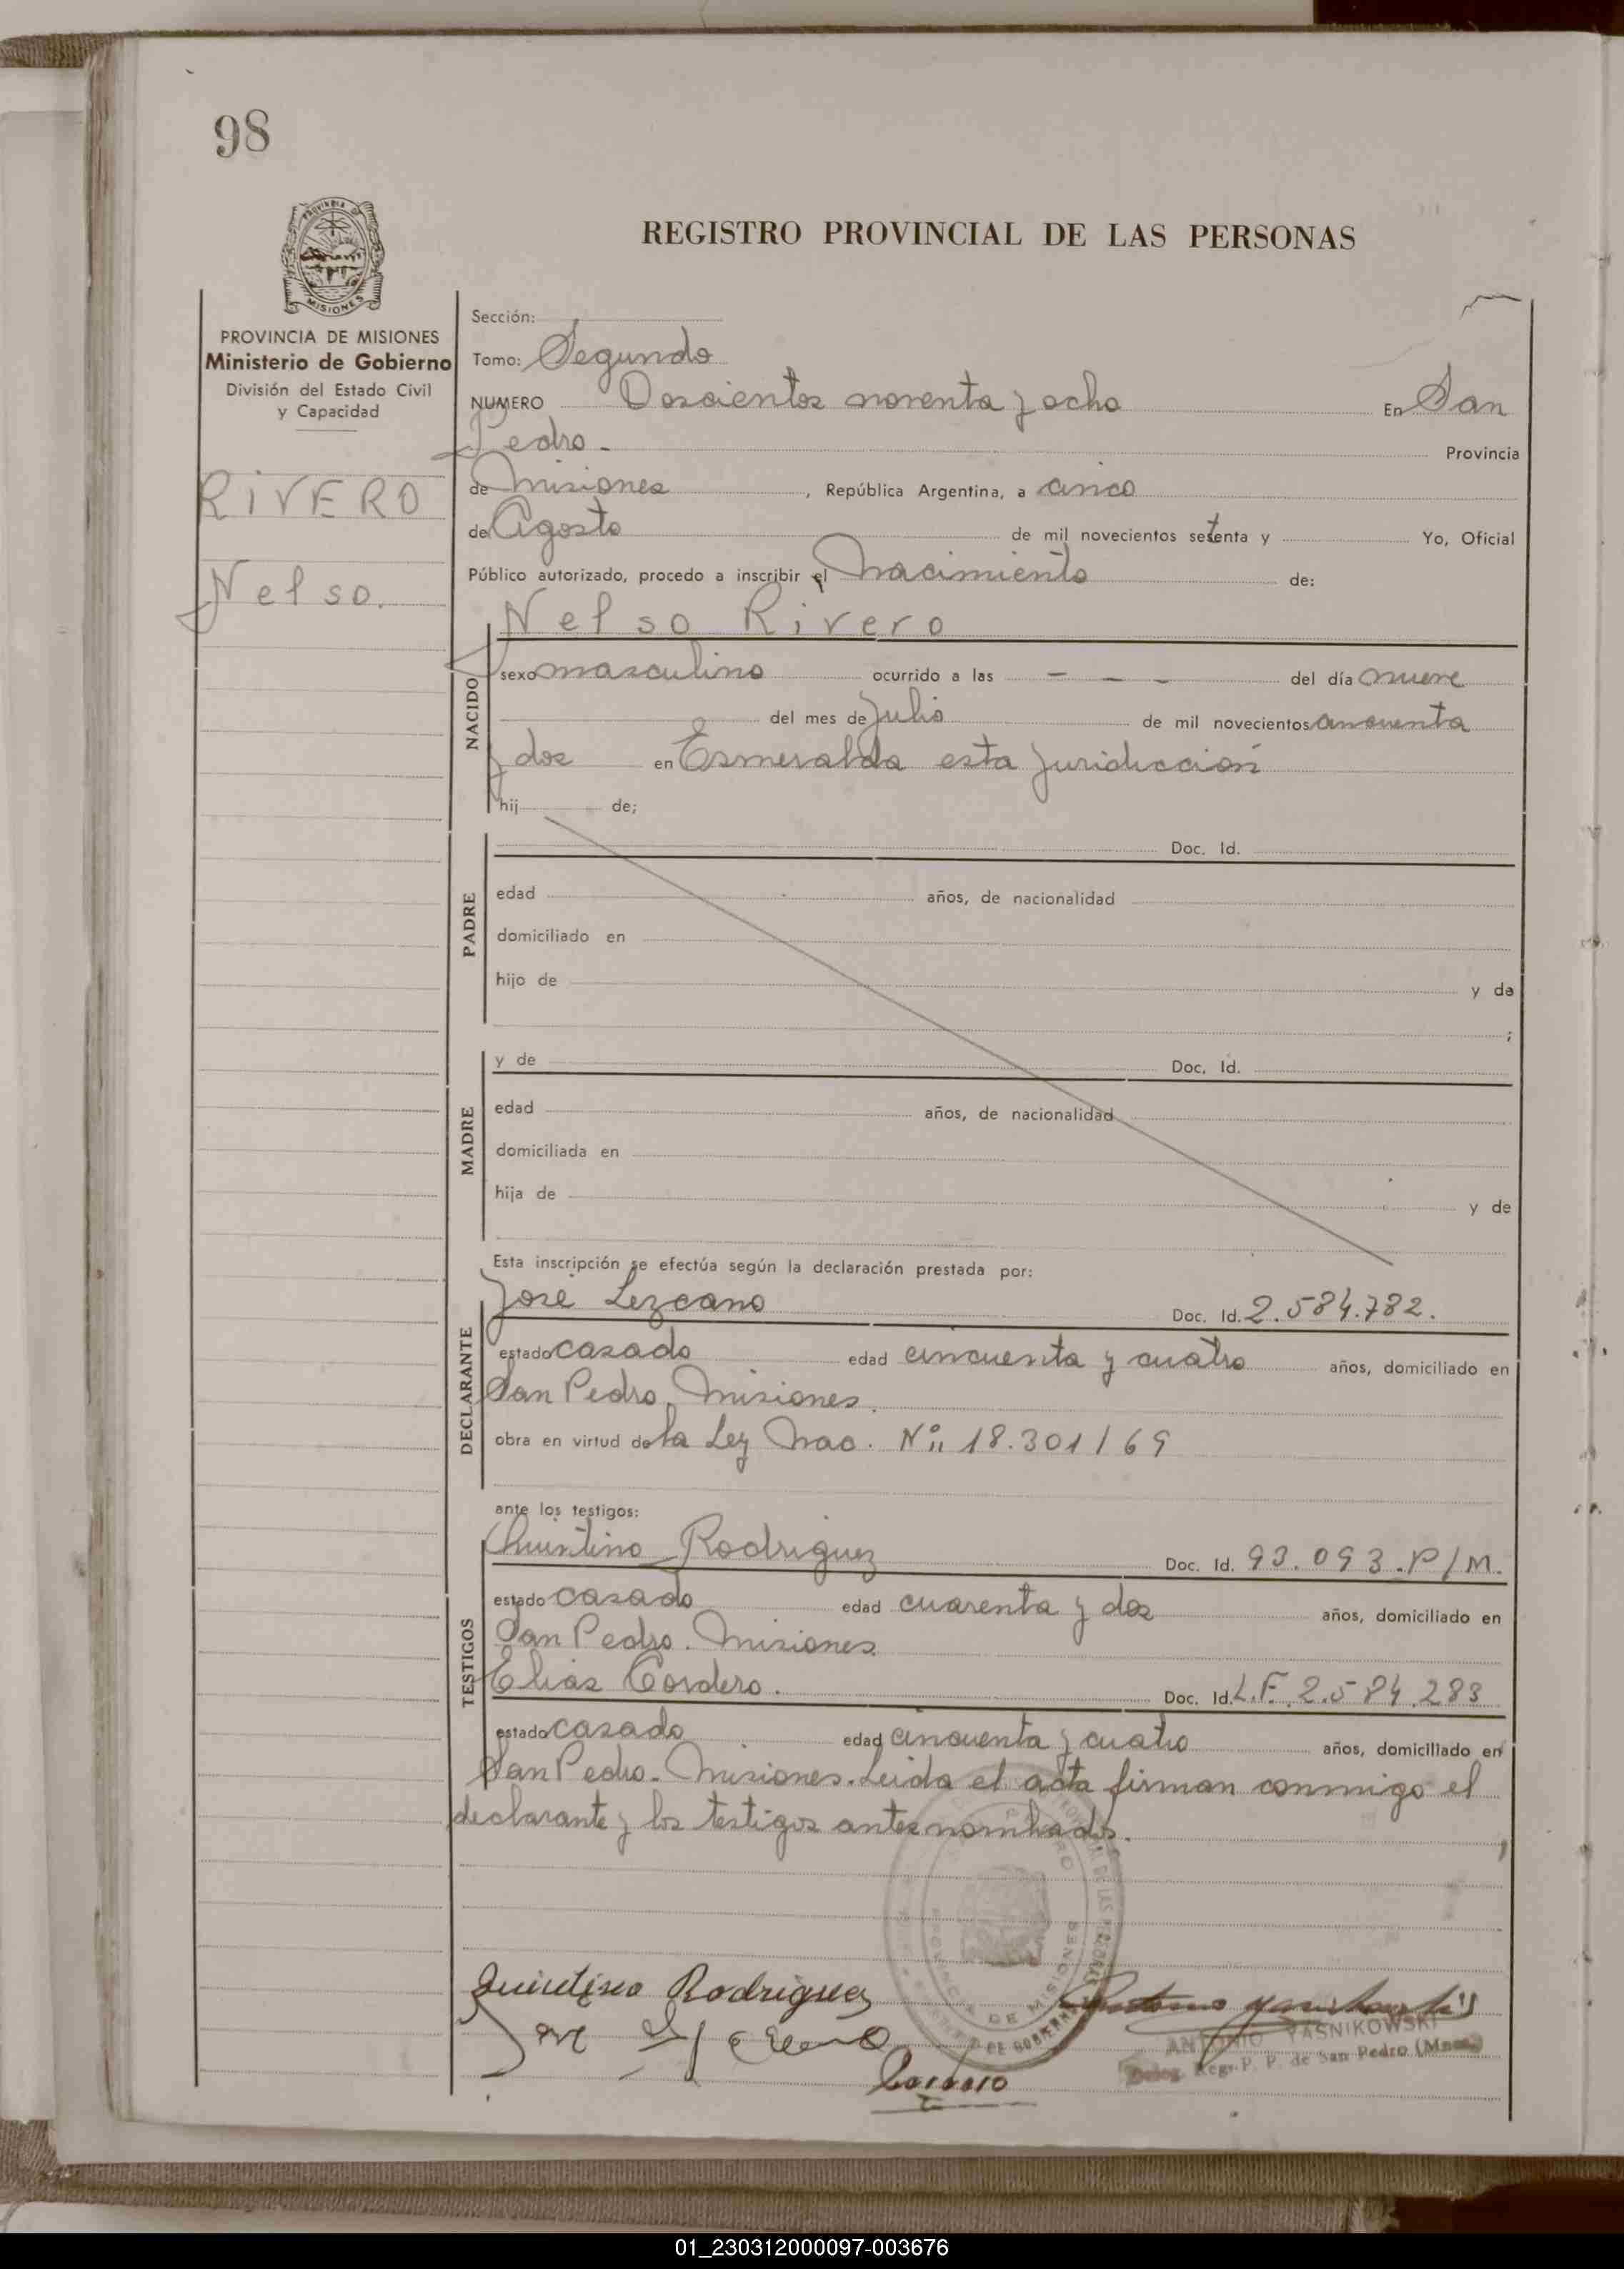 98
PROVINCIA DE
MISIONES
REGISTRO PROVINCIAL DE LAS PERSONAS
PROVINCIA DE MISIONES
Ministerio de Gobierno
División del Estado Civil
y Capacidad
RIVERO
Nelso.
Sección:
Tomo: Segundo
NUMERO Doscientos noventa y ocho En San
Pedro - Provincia
de Misiones, República Argentina, a cinco
de Agosto de mil novecientos setenta y Yo, Oficial
Público autorizado, procedo a inscribir el Nacimiento de:
Nelso Rivero
NACIDO
sexo masculino ocurrido a las - - - del día nueve
del mes de Julio de mil novecientos cincuenta
y dos en Esmeralda esta Juridicción
hij de;
PADRE
Doc. Id.
edad años, de nacionalidad
domiciliado en
hijo de y de
;
MADRE
y de Doc. Id.
edad años, de nacionalidad
domiciliada en
hija de y de
Esta inscripción se efectúa según la declaración prestada por:
DECLARANTE
José Lezcano Doc. Id. 2.584.782.
estado casado edad cincuenta y cuatro años, domiciliado en
San Pedro. Misiones.
obra en virtud de la Ley Nac. Nº 18.301/69
ante los testigos:
TESTIGOS
Quintino Rodriguez Doc. Id. 93.093.P/M.
estado casado edad cuarenta y dos años, domiciliado en
San Pedro. Misiones
Elias Cordero. Doc. Id. L.E. 2.584.283
estado casado edad cincuenta y cuatro años, domiciliado en
San Pedro. Misiones. Leida el acta firman conmigo el
declarante y los testigos antes nombrados.
Quintino Rodriguez
ANTONIO YASNIKOWSKI
Deleg. Reg. P. P. de San Pedro (Mnes.)
DE MISIONES
01_230312000097-003676